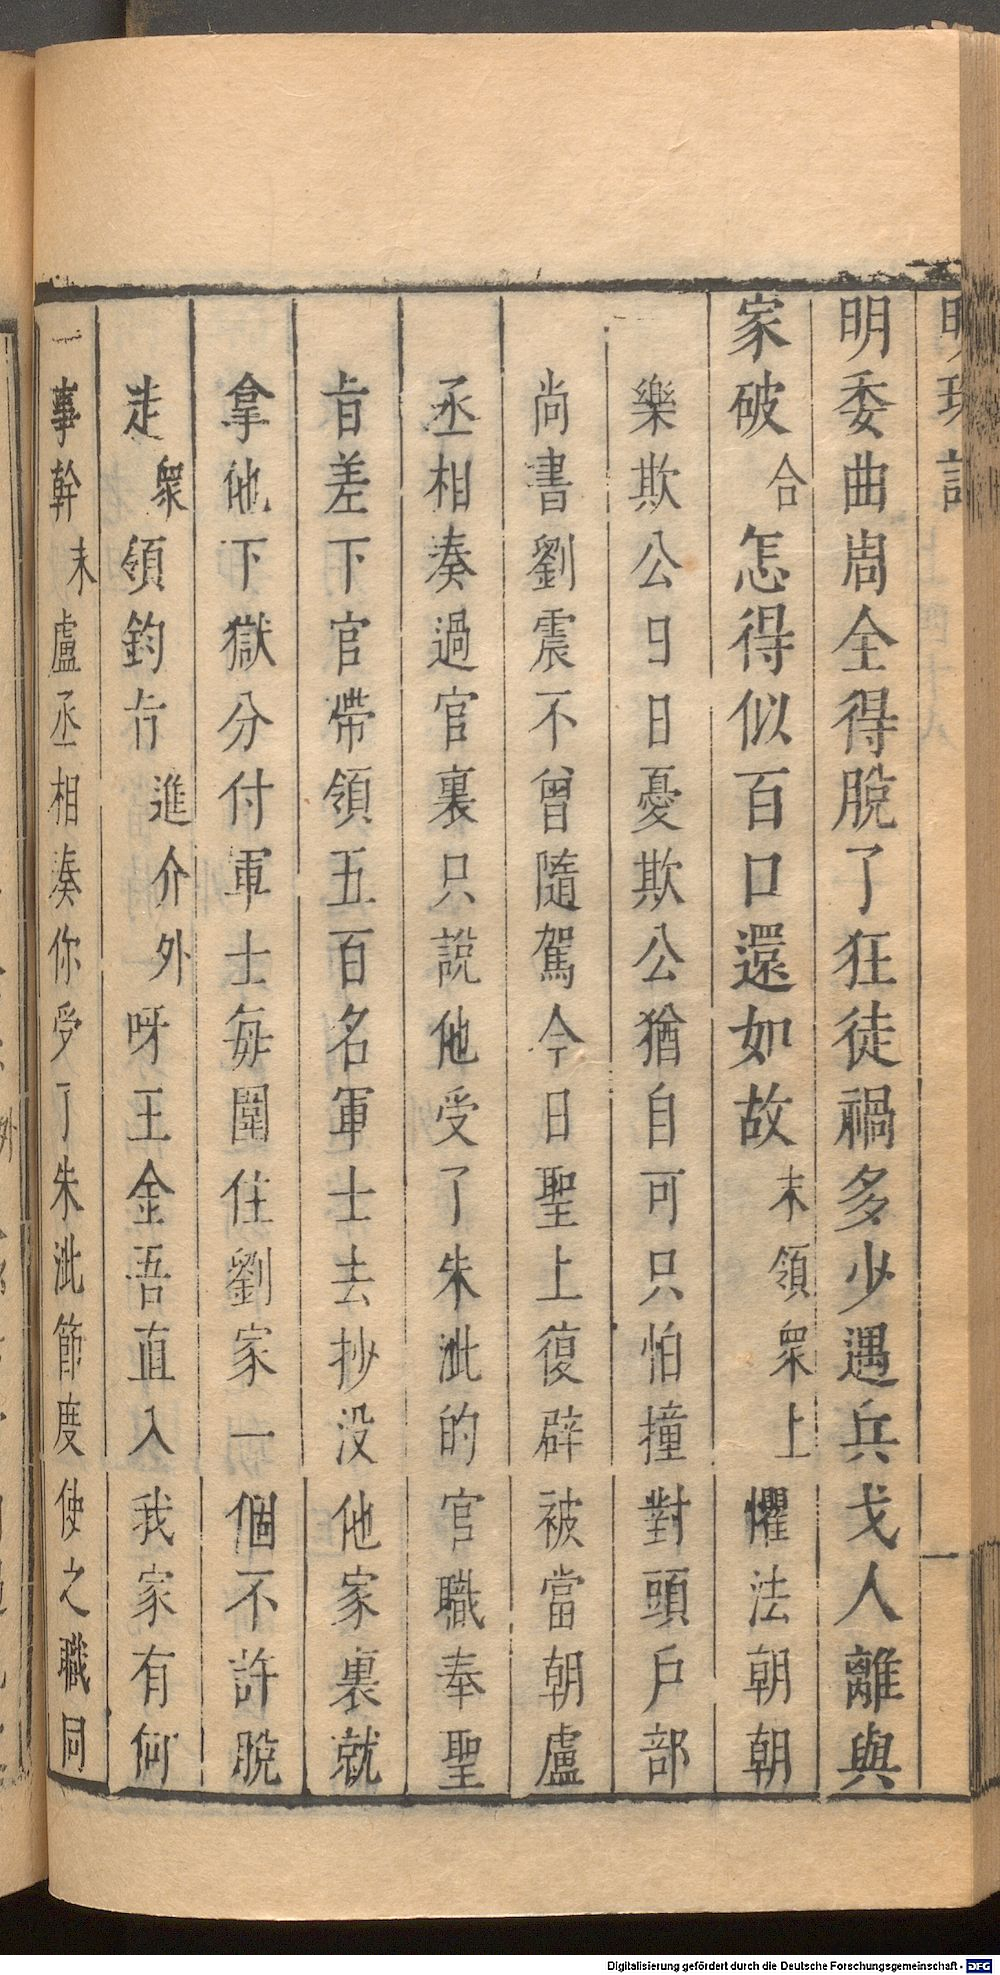 明珠記
明委曲周全得脫了狂徒禍多少遇兵戈人離與
家破合怎得似百口還如故末領衆上懼法朝朝
樂欺公日日憂欺公猶自可只怕撞對頭戶部
尚書劉震不曾隨駕今日聖上復辟被當朝盧
丞相奏過官裏只說他受了朱泚的官職奉聖
旨差下官帶領五百名軍士去抄没他家裏就
拿他下獄分付軍士每圍住劉家一個不許脫
走衆領鈞旨進介外呀王金吾直入我家有何
事幹末盧丞相奏你受了朱泚節度使之職同
Digitalisierung gefördert durch die Deutsche Forschungsgemeinschaft - DFG